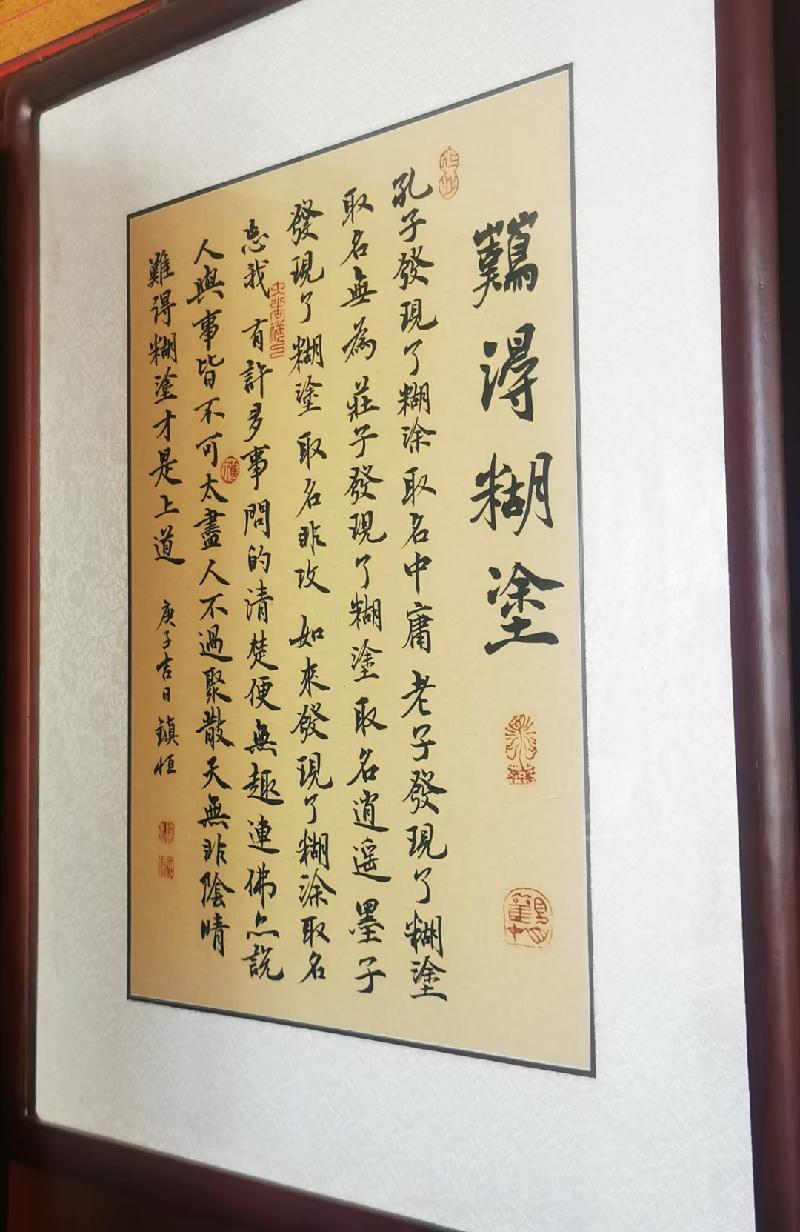 難得糊塗
孔子發現了糊涂取名中庸老子發現了糊塗
取名無為莊子發現了糊塗取名逍遥墨子
發現了糊塗取名非攻如來發現了糊涂取名
忘我有許多事問的清楚便無趣連佛亦説
人與事皆不可太盡人不過聚散天無非陰晴
難得糊塗才是上道
庚子吉日鎮恒